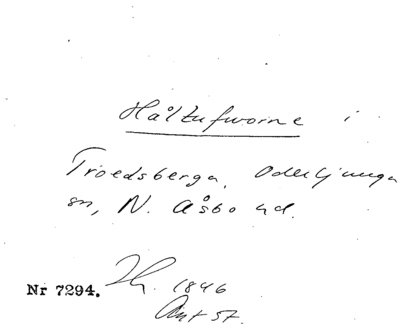 Håltufworne i
Troedsberga, Oderljunga
sn, N. Åsbo hd.
Nr 7294. 1846